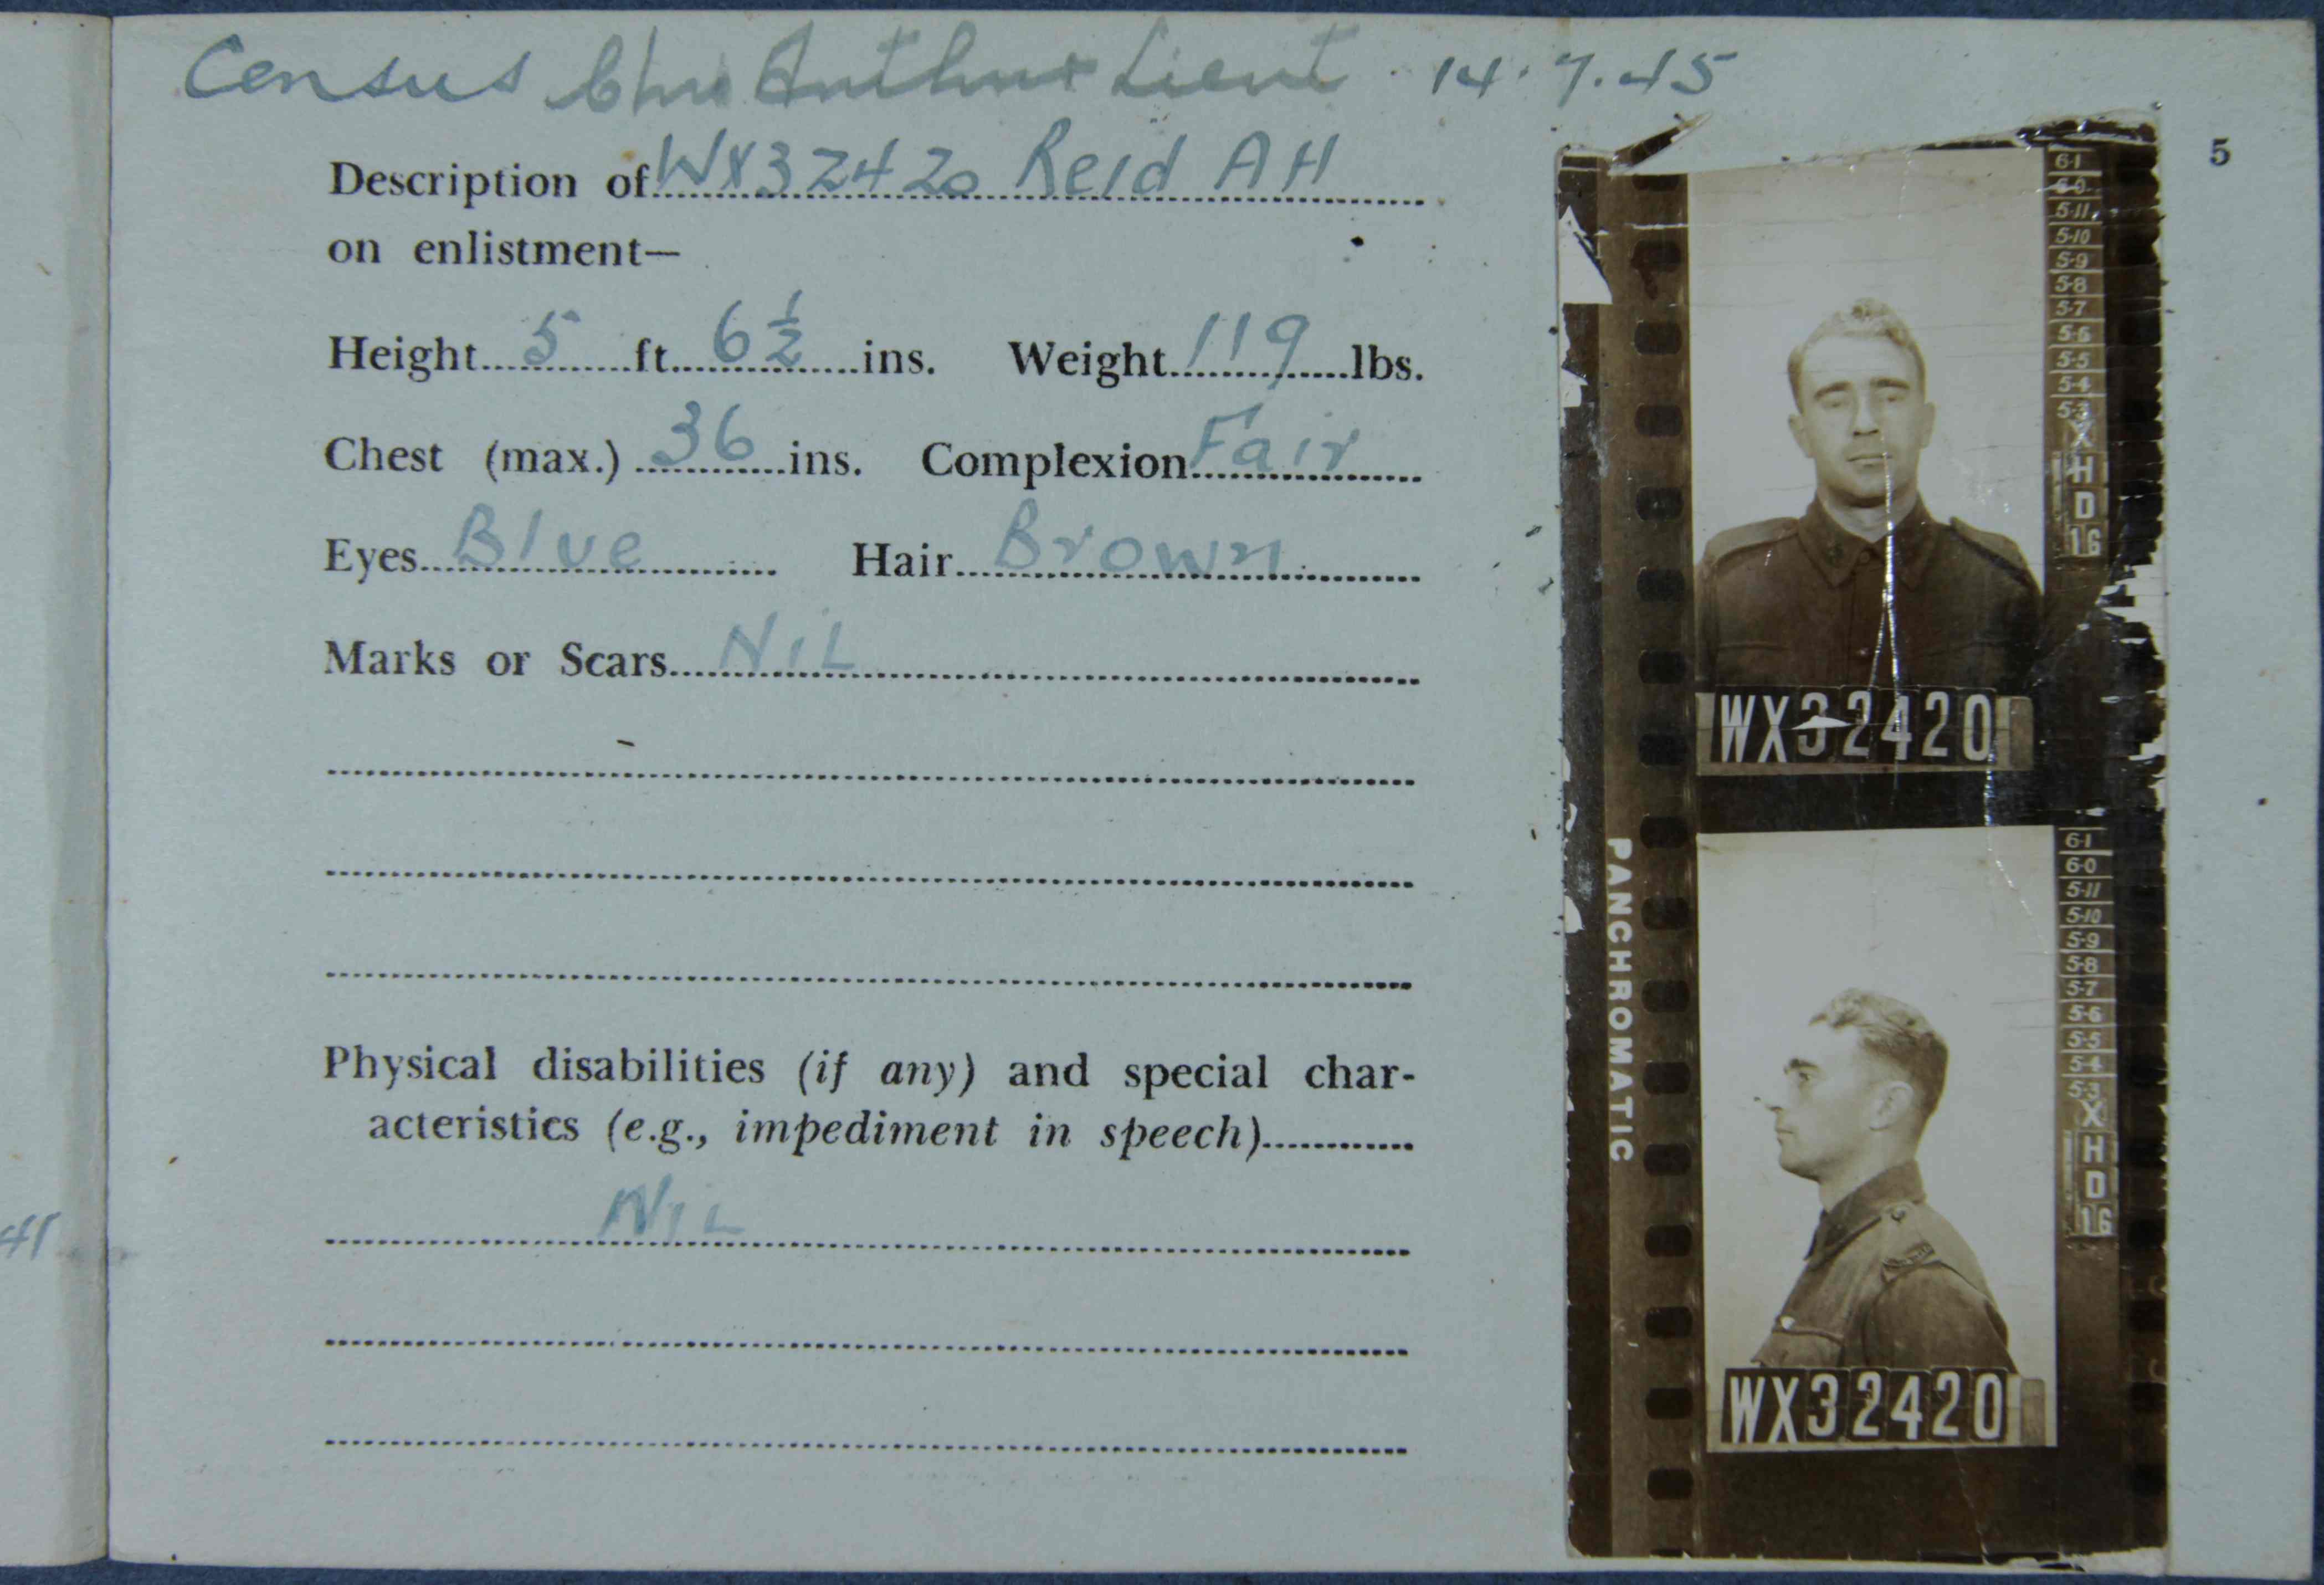 Census Arthur Lieut 14.7.45
5
Description of WX32420 Reid A H
on enlistment—
Height 5 ft. 6½ ins. Weight 119 lbs.
Chest (max.) 36 ins. Complexion Fair
Eyes Blue Hair Brown
Marks or Scars Nil
Physical disabilities (if any) and special char-
acteristics (e.g., impediment in speech)
Nil
41
6-1
6-0
5-11
5-10
5-9
5-8
5-7
5-6
5-5
5-4
5-3
X
H
D
16
WX32420
PANCHROMATIC
6-1
6-0
5-11
5-10
5-9
5-8
5-7
5-6
5-5
5-4
5-3
X
H
D
16
WX32420